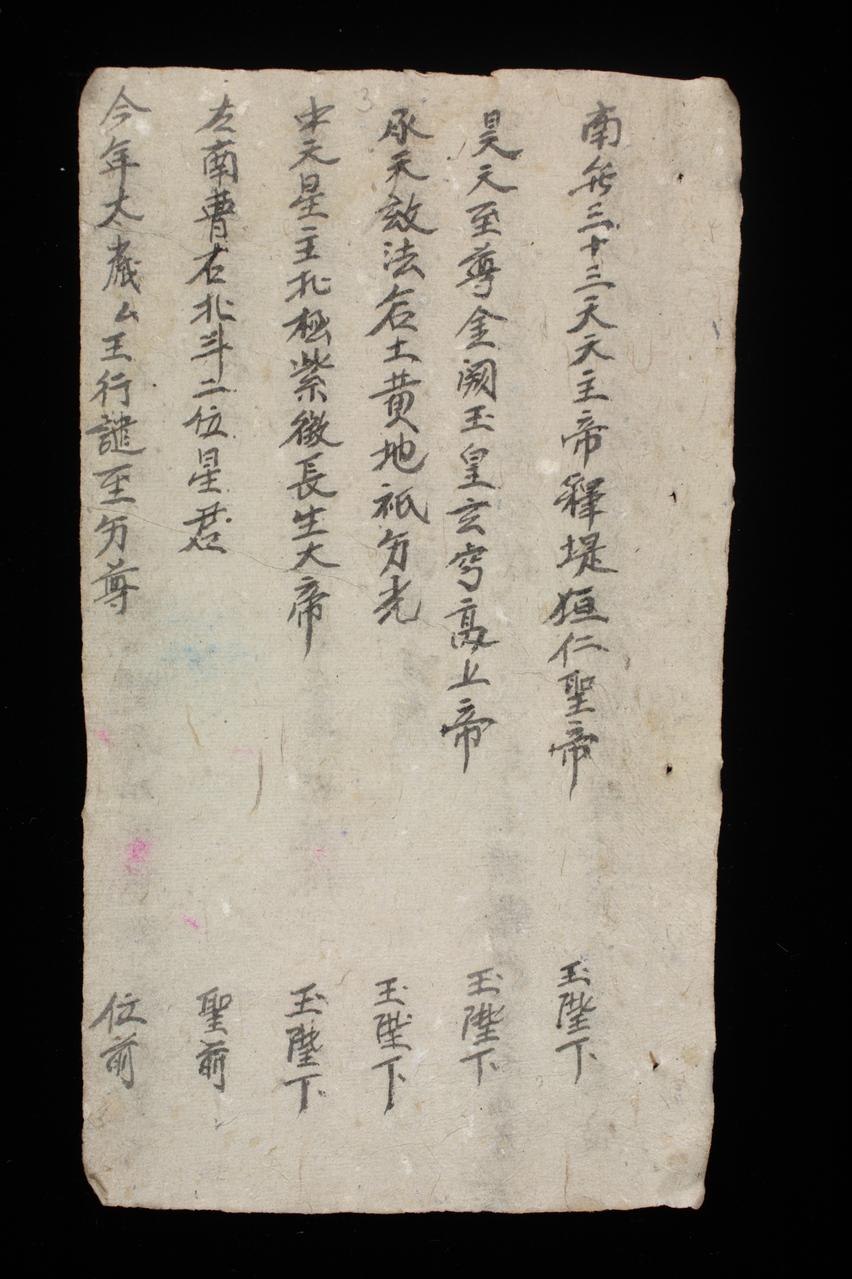 南無三十三天天主帝釋堤姮仁聖帝 玉陛下
昊天至尊金阙玉皇玄穹高上帝 玉陛下
承天效法后土黄地祇 玉陛下
中天星主北極紫微長生大帝 玉陛下
左南曹右北斗二位星君 聖前
今年太歲 王行譴至 尊 位前
3